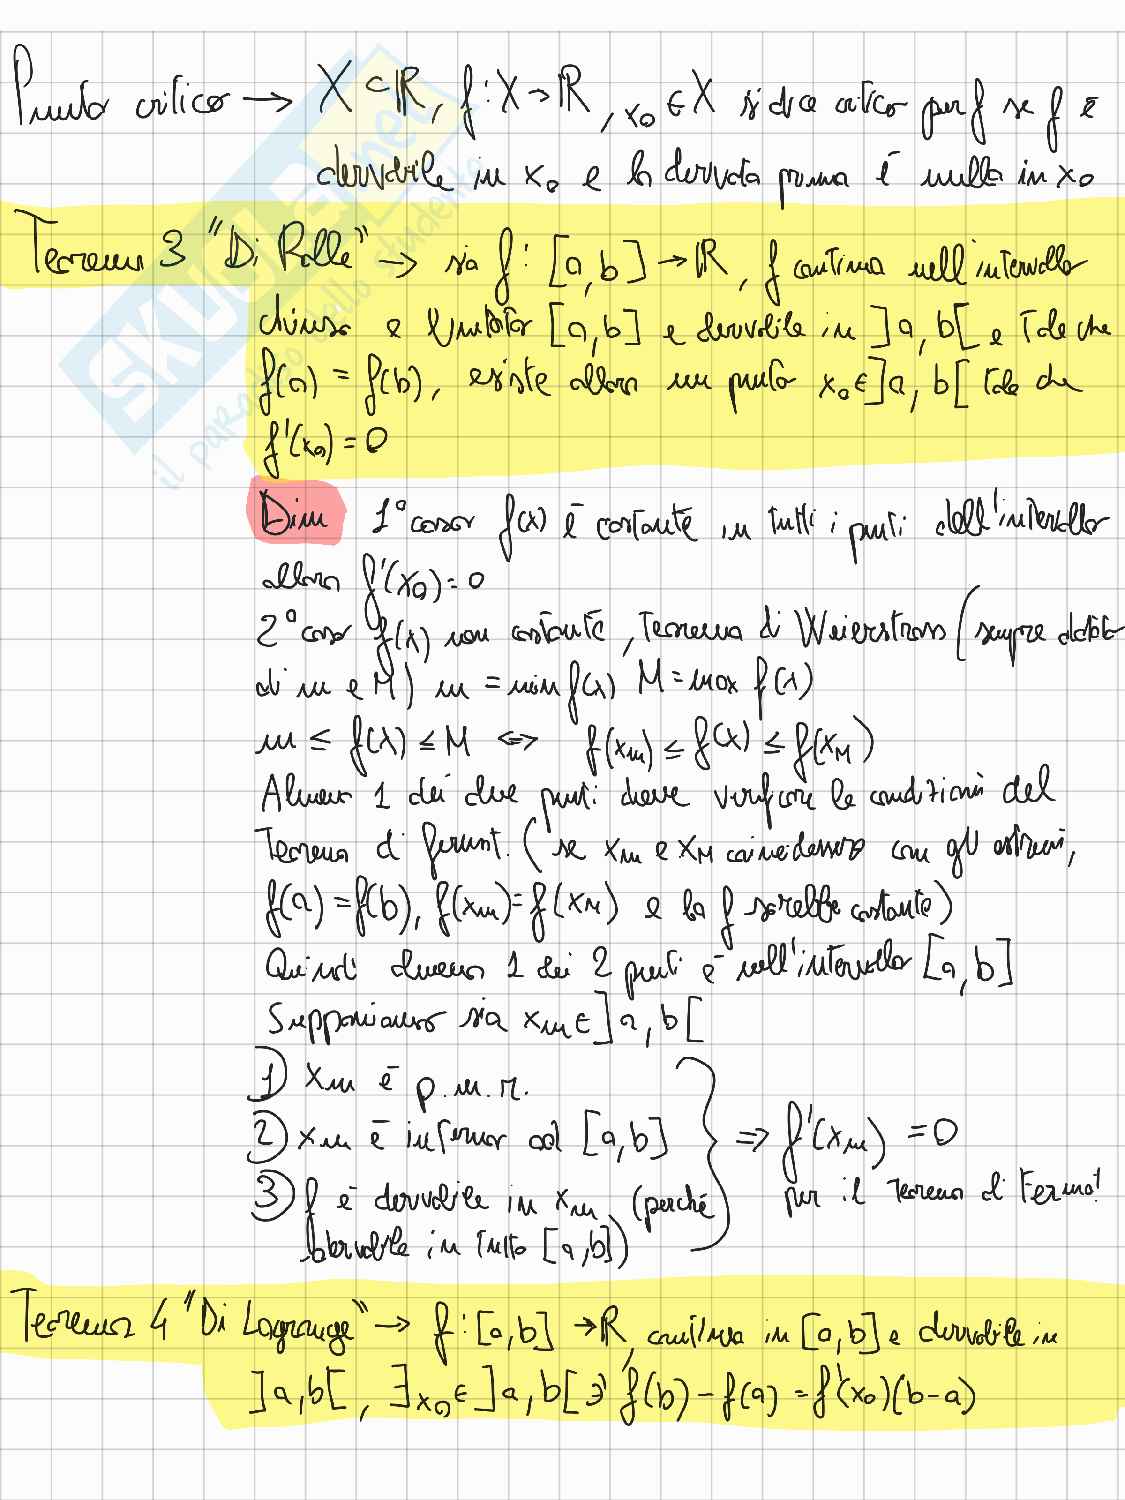 Punto critico → X ⊂ ℝ, f: X → ℝ, x₀ ∈ X si dice critico per f se f è
derivabile in x₀ e la derivata prima è nulla in x₀
Teorema 3 "Di Rolle" → sia f: [a, b] → ℝ, f continua nell'intervallo
chiuso e limitato [a, b] e derivabile in ]a, b[ e tale che
f(a) = f(b), esiste allora un punto x₀ ∈ ]a, b[ tale che
f'(x₀) = 0
Dim 1° caso f(x) è costante in tutti i punti dell'intervallo
allora f'(x₀) = 0
2° caso f(x) non costante, Teorema di Weierstrass (sempre
di m e M) m = min f(x) M = max f(x)
m ≤ f(x) ≤ M ⇔ f(xm) ≤ f(x) ≤ f(xM)
Almeno 1 dei due punti deve verificare le condizioni del
Teorema di fermat. (se xm e xM coincidessero con gli estremi,
f(a) = f(b), f(xm) = f(xM) e la f sarebbe costante)
Quindi almeno 1 dei 2 punti è nell'intervallo [a, b]
Supponiamo sia xm ∈ ]a, b[
1) xm è p.m.r.
2) xm è interno ad [a, b]
3) f è derivabile in xm (perché
derivabile in tutto [a, b])
⇒ f'(xm) = 0
per il Teorema di Fermat
Teorema 4 "Di Lagrange" → f: [a, b] → ℝ, continua in [a, b] e derivabile in
]a, b[, ∃ x₀ ∈ ]a, b[ ∋' f(b) - f(a) = f'(x₀)(b-a)
SKUOLA.net
il paradiso dello studente